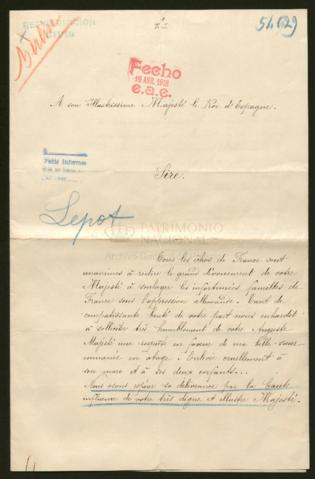 54629
Fecho
19 AVR. 1918
e.a.e.
A son Illustrissime Majesté le Roi d'Espagne.
Sire.
Lepot
PATRIMONIO
NACIONAL
Tous les échos de France sont
unanimes à redire le grand dévouement de votre
Majesté à soulager les infortunées familles de
France sous l'oppression allemande. Tant de
compatissante bonté de votre part nous enhardit
à solliciter très humblement de votre Auguste
Majesté une requête en faveur de ma belle-sœur
emmenée en otage. Enlevée cruellement à
son mari et à ses deux enfants...
Nous osons espérer sa délivrance par la haute
influence de votre très digne et illustre Majesté.